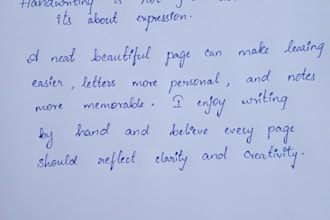 Handwriting is not
its about expression.
A neat beautiful page can make learing
easier, letters more personal, and notes
more memorable. I enjoy writing
by hand and believe every page
should reflect clarity and creativity.